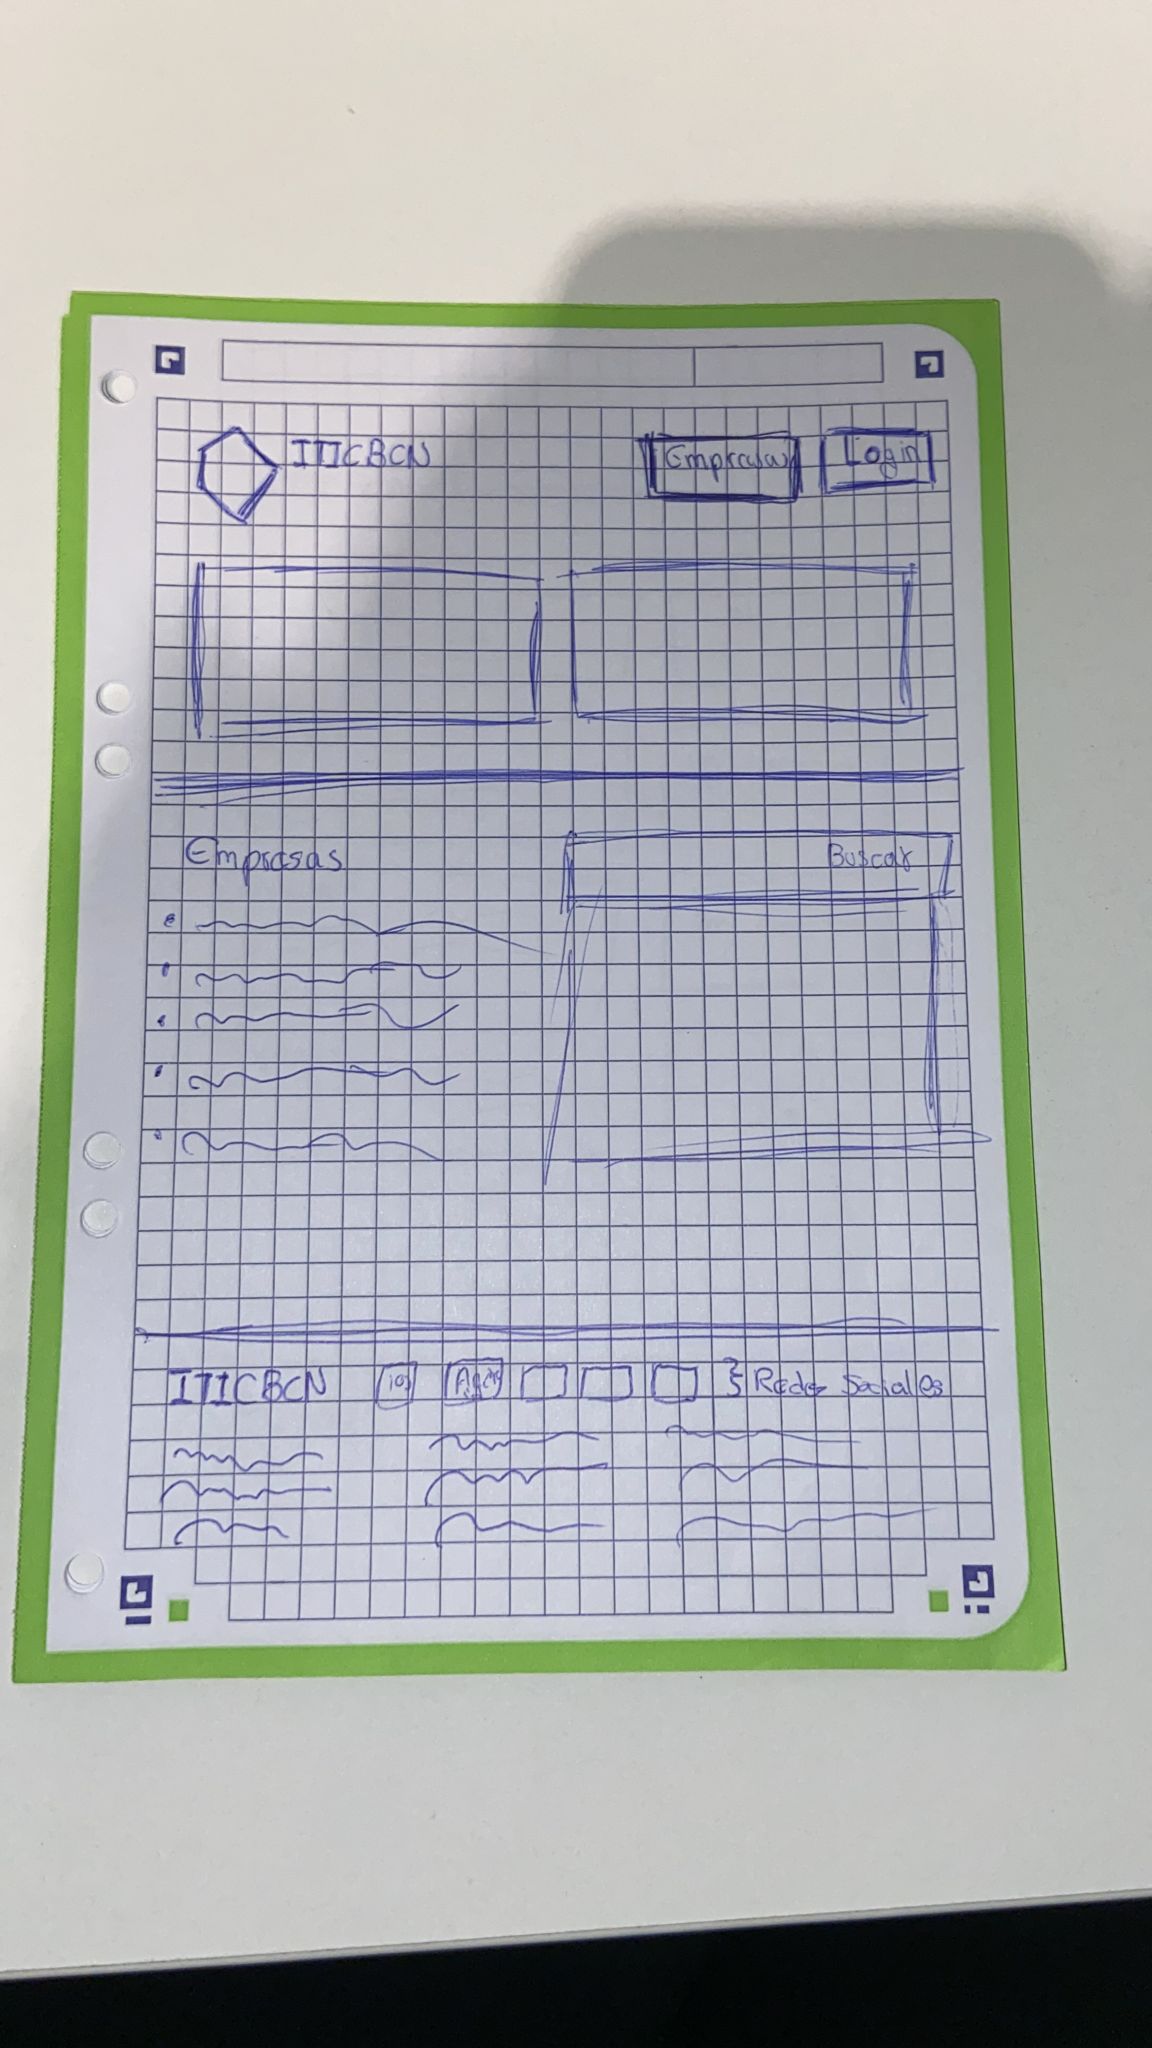 ITICBCN
Empresas
Login
Empresas
Buscar
ITICBCN
ios
Redes Sociales